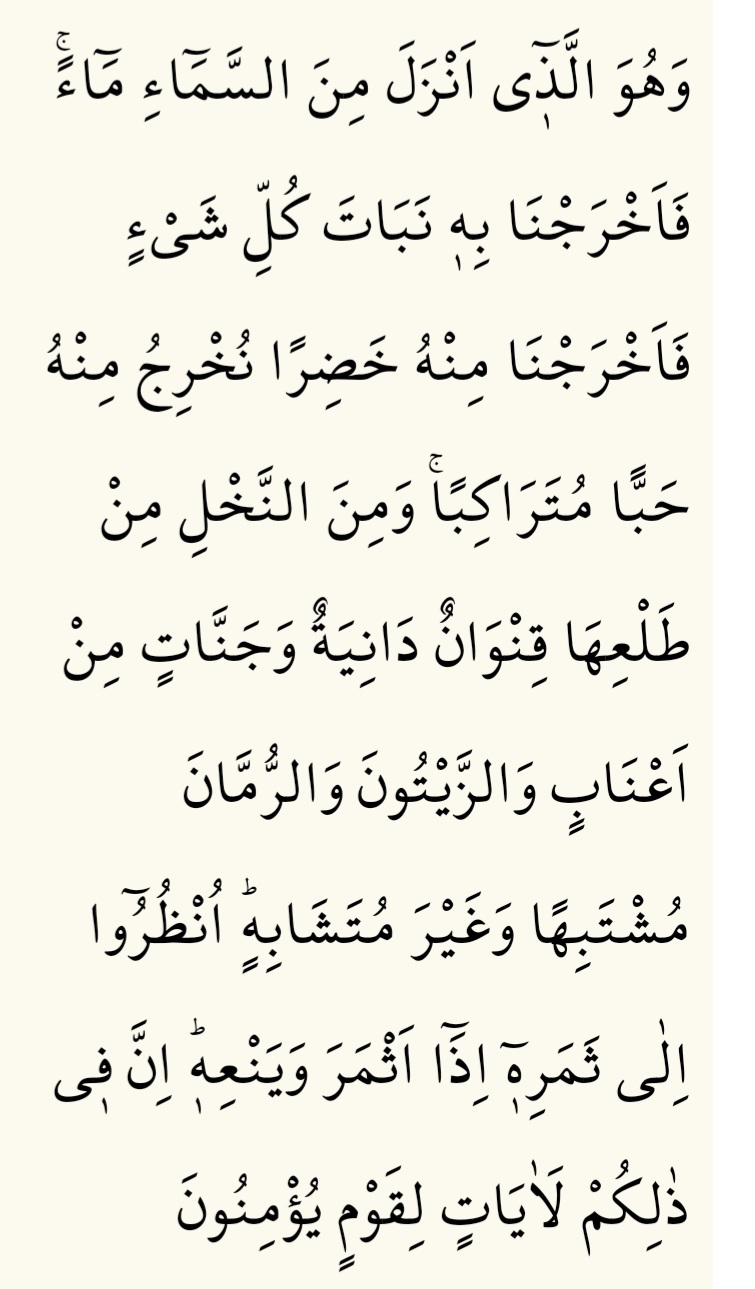 وَهُوَ الَّذ۪ٓي اَنْزَلَ مِنَ السَّمَٓاءِ مَٓاءًۚ
فَاَخْرَجْنَا بِه۪ نَبَاتَ كُلِّ شَيْءٍ
فَاَخْرَجْنَا مِنْهُ خَضِرًا نُخْرِجُ مِنْهُ
حَبًّا مُتَرَاكِبًاۚ وَمِنَ النَّخْلِ مِنْ
طَلْعِهَا قِنْوَانٌ دَانِيَةٌ وَجَنَّاتٍ مِنْ
اَعْنَابٍ وَالزَّيْتُونَ وَالرُّمَّانَ
مُشْتَبِهًا وَغَيْرَ مُتَشَابِهٍۜ اُنْظُرُٓوا
اِلٰى ثَمَرِه۪ٓ اِذَٓا اَثْمَرَ وَيَنْعِه۪ۜ اِنَّ ف۪ي
ذٰلِكُمْ لَاٰيَاتٍ لِقَوْمٍ يُؤْمِنُونَ